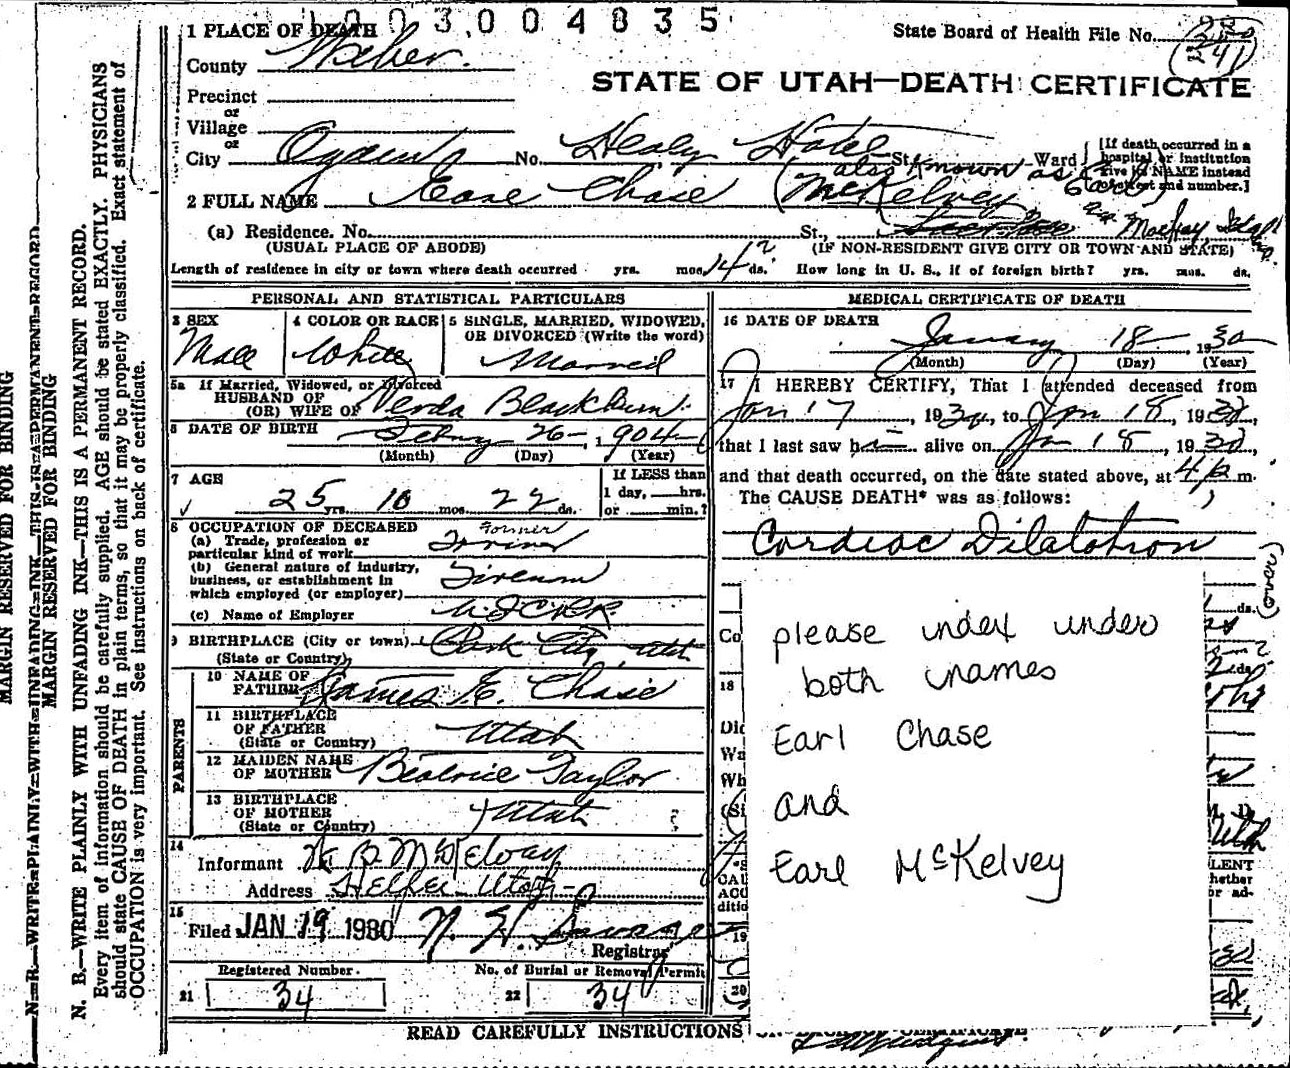 1003004835
1 PLACE OF DEATH
State Board of Health File No. 241
County Weber.
STATE OF UTAH—DEATH CERTIFICATE
Precinct
or
Village
or
City Ogden No. Healy Hotel St. Ward
[If death occurred in a
hospital or institution
give its NAME instead
of street and number.]
also known as
2 FULL NAME Chase (McKelvey)
(a) Residence. No. St., Mackay,
(USUAL PLACE OF ABODE) (IF NON-RESIDENT GIVE CITY OR TOWN AND STATE)
Length of residence in city or town where death occurred yrs. mos. 14 ds. ? How long in U. S., if of foreign birth? yrs. mos. ds.
PERSONAL AND STATISTICAL PARTICULARS
3 SEX
Male
4 COLOR OR RACE
White
5 SINGLE, MARRIED, WIDOWED,
OR DIVORCED (Write the word)
Married
5a If Married, Widowed, or Divorced
HUSBAND OF
(OR) WIFE OF Verda Blackburn.
6 DATE OF BIRTH Febry 26 1904
(Month) (Day) (Year)
7 AGE
25 yrs. 10 mos. 22 ds.
If LESS than
1 day, hrs.
or min.?
8 OCCUPATION OF DECEASED
(a) Trade, profession or
particular kind of work
Former
(b) General nature of industry,
business, or establishment in
which employed (or employer) Fireman
(c) Name of Employer
9 BIRTHPLACE (City or town) Park City, Utah
(State or Country)
PARENTS
10 NAME OF
FATHER James E. Chase
11 BIRTHPLACE
OF FATHER
(State or Country) Utah
12 MAIDEN NAME
OF MOTHER Beatrice Taylor
13 BIRTHPLACE
OF MOTHER
(State or Country) Utah
14
Informant McKelvey
Address Helper Utah
15
Filed JAN 19 1930
Registrar
Registered Number.
21 34
No. of Burial or Removal Permit
22 34
MEDICAL CERTIFICATE OF DEATH
16 DATE OF DEATH
January 18 1930
(Month) (Day) (Year)
17 I HEREBY CERTIFY, That I attended deceased from
Jan 17, 1930, to Jan 18, 1930,
that I last saw him alive on Jan 18, 1930
and that death occurred, on the date stated above, at 4 p m.
The CAUSE DEATH* was as follows:
Cardiac Dilatation
(over)
please index under
both names
Earl Chase
and
Earl McKelvey
READ CAREFULLY INSTRUCTIONS
MARGIN RESERVED FOR BINDING
N. B.—WRITE PLAINLY WITH UNFADING INK—THIS IS A PERMANENT RECORD
MARGIN RESERVED FOR BINDING
N. B.—WRITE PLAINLY WITH UNFADING INK—THIS IS A PERMANENT RECORD.
Every item of information should be carefully supplied. AGE should be stated EXACTLY. PHYSICIANS
should state CAUSE OF DEATH in plain terms, so that it may be properly classified. Exact statement of
OCCUPATION is very important. See instructions on back of certificate.